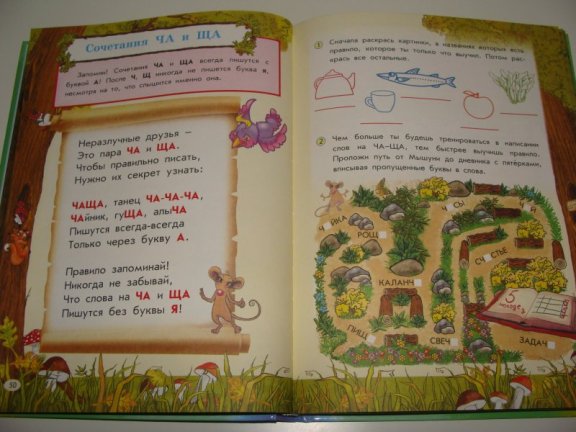 Сочетания ЧА и ЩА
Запомни! Сочетания ЧА и ЩА всегда пишутся с
буквой А! После Ч, Щ никогда не пишется буква Я,
несмотря на то, что слышится именно она.
Неразлучные друзья –
Это пара ЧА и ЩА.
Чтобы правильно писать,
Нужно их секрет узнать:
ЧАЩА, танец ЧА-ЧА-ЧА,
ЧАйник, гуЩА, алыЧА
Пишутся всегда-всегда
Только через букву А.
Правило запоминай!
Никогда не забывай,
Что слова на ЧА и ЩА
Пишутся без буквы Я!
50
1 Сначала раскрась картинки, в названиях которых есть
правило, которое ты только что выучил. Потом рас-
крась все остальные.
2 Чем больше ты будешь тренироваться в написании
слов на ЧА–ЩА, тем быстрее выучишь правило.
Проложи путь от Мышуни до дневника с пятёрками,
вписывая пропущенные буквы в слова.
Ч ЙКА
Ч СЫ
Ч Й
РОЩ
СЧ СТЬЕ
КАЛАНЧ
5
молодец
ПИЩ
СВЕЧ
ЗАДАЧ